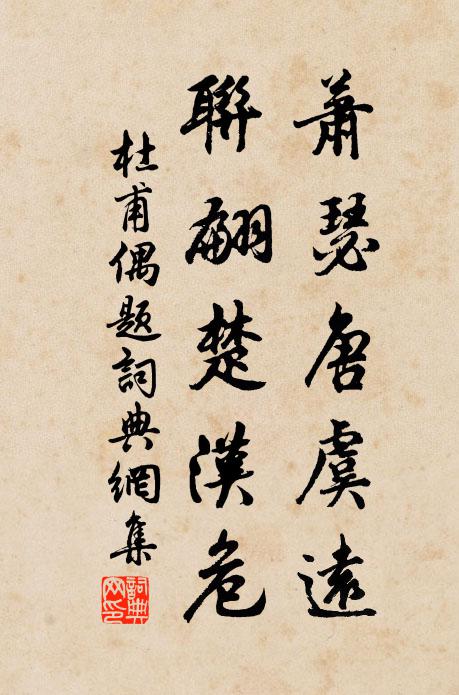 蕭瑟唐虞遠
聯翩楚漢危
杜甫偶題詞典網集
詞典網印